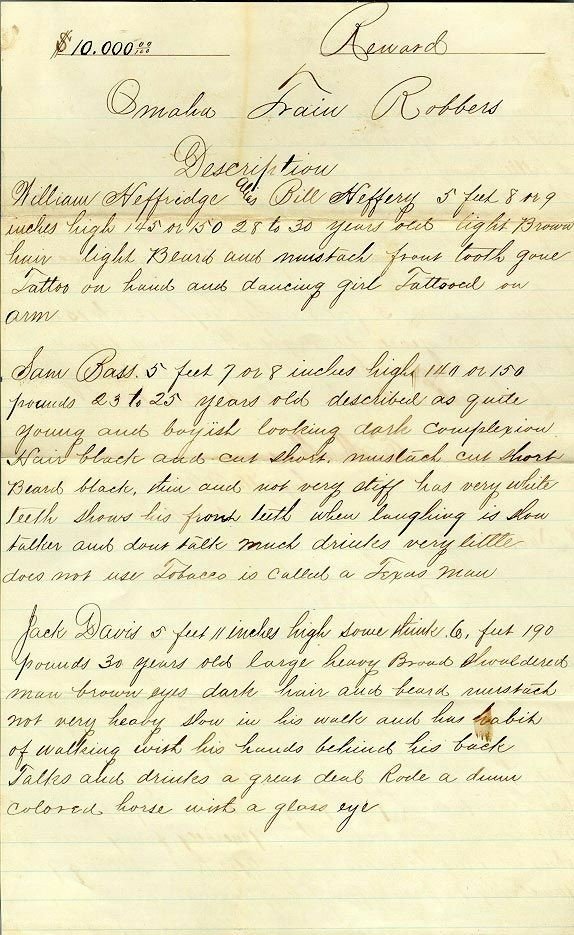 $10.000 00/100 Reward
Omaha Train Robbers
Description
William Heffridge alias Bill Heffery 5 feet 8 or 9
inches high 145 or 150 28 to 30 years old light Brown
hair light Beard and mustach front tooth gone
Tattoo on hand and dancing girl Tattooed on
arm
Sam Bass. 5 feet 7 or 8 inches high 140 or 150
pounds 23 to 25 years old described as quite
young and boyish looking dark complexion
Hair black and cut short. mustach cut short
Beard black, thin and not very stiff has very white
teeth shows his front teeth when laughing is slow
talker and dont talk much drinks very little
does not use Tobacco is called a Texas man
Jack Davis 5 feet 11 inches high some think 6, feet 190
pounds 30 years old large heavy Broad shouldered
man brown eyes dark hair and beard mustach
not very heavy slow in his walk and has habit
of walking with his hands behind his back
Talks and drinks a great deal Rode a dunn
colored horse with a glass eye